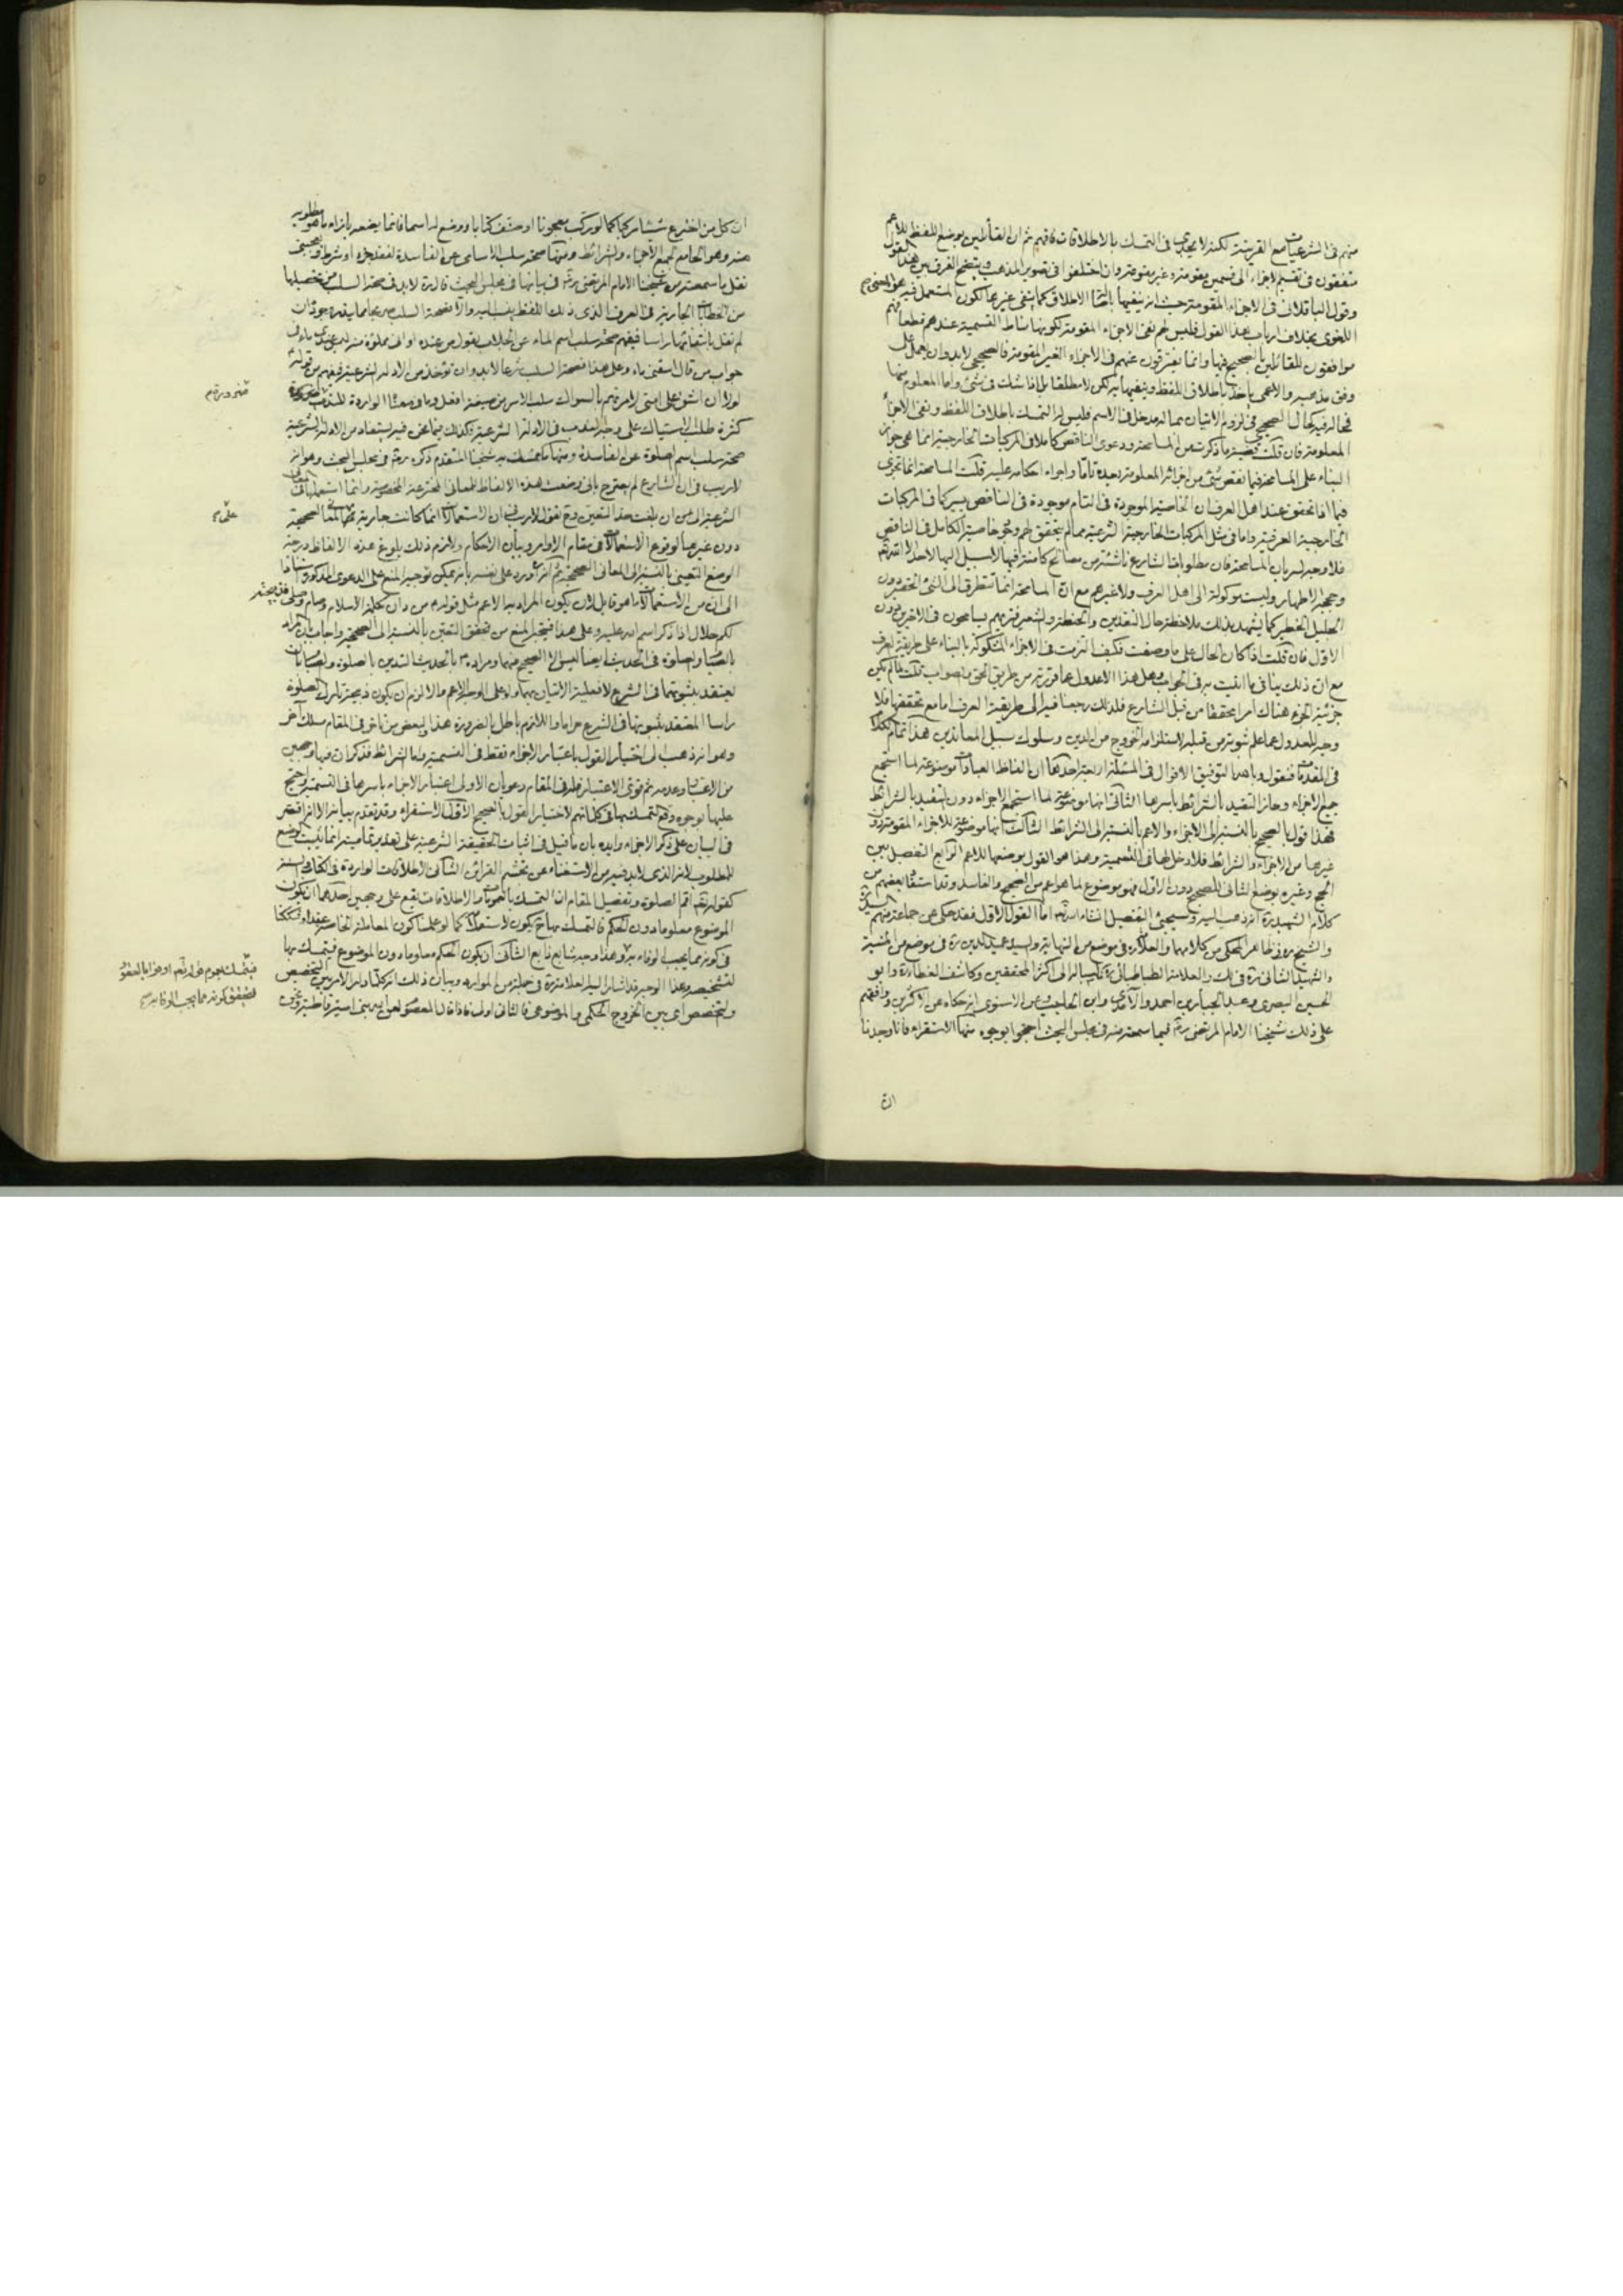 منهم في الشرعيات مع القرينة لكنه لا يجدي في التمسك بالاطلاقات فافهم ثم ان القائلين بوضع اللفظ للاعم
متفقون في تقسيم الاجزاء الى قسمين مقومة وغير مقومة وان اختلفوا في تصوير المذهب ويتضح الفرق بين هذا القول
وقول الباقلاني في الاجزاء المقومة حيث انه ينفيها بالاطلاق كما ينفي غيرها لكون المستعمل فيه هو المعنى
اللغوي بخلاف ارباب هذا القول فليس لهم نفي الاجزاء المقومة لكونها مناط التسمية عندهم قطعا فهم
موافقون للقائلين بالصحيح فيها وانما يفترقون عنهم في الاجزاء الغير المقومة فالصحيحي لابد وان يعمل على
وفق مذهبه والاعمي ياخذ باطلاق اللفظ وينفيها به لكن لا مطلقا بل اذا شك في شئ واما المعلوم منها
فحاله فيه كحال الصحيحي في لزوم الاتيان بماله مدخل في الاسم فليس له التمسك باطلاق اللفظ ونفي الاجزاء
المعلومة فان قلت قضية ما ذكرت من المسامحة ودعوى الناقص كاملا في المركبات الخارجية انما هي جواز
البناء على المسامحة فيما نقص شئ من اجزائه المعلومة بعده تاما واجراء احكامه عليه قلت المسامحة انما تجري
فيما اذا تحقق عند اهل العرف ان الخاصية الموجودة في التام موجودة في الناقص يسير كما في المركبات
الخارجية العرفية واما في مثل المركبات الخارجية الشرعية مما لم يتحقق لهم وجود خاصية الكامل في الناقص
فلا وجه لسريان المسامحة فان مطلوبات الشارع ناشئة من مصالح كامنة فيها لا سبيل اليها لاحد الا الله
وحججه الاطهار وليست موكولة الى اهل العرف ولا غيرهم مع ان المسامحة انما تتطرق الى الشئ الحقير دون
الجليل الخطير كما يشهد بذلك ملاحظة حال النقدين والحنطة والشعير فتريهم يسامحون في الاخيرين دون
الاول فان قلت اذا كان الحال على ما وصفت فكيف التزمت في الاجزاء المشكوكة بالبناء على طريقة العرف
مع ان ذلك ينافي ما اتيت به في الجواب وهل هذا الا عدول عما قررته من طريق الحق والصواب قلت لما لم يكن
جزئية الجزء هناك امرا محققا من قبل الشارع فلذلك رجعنا فيه الى طريقة العرف اما مع تحققها فلا
وجه للعدول عما علم ثبوته من قبله لاستلزامه الخروج من الدين وسلوك سبيل المعاندين هذا تمام الكلام
في المقدمات فنقول وبالله التوفيق الاقوال في المسئلة اربعة احدها ان الفاظ العبادات موضوعة لما استجمع
جميع الاجزاء وحاز التقييد بالشرائط باسرها الثاني انها موضوعة لما استجمع الاجزاء دون التقييد بالشرائط
فهذا قول بالصحيح بالنسبة الى الاجزاء والاعم بالنسبة الى الشرائط الثالث انها موضوعة للاجزاء المقومة دون
غيرها من الاجزاء والشرائط فلا دخل لها في التسمية وهذا هو القول بوضعها للاعم الرابع التفصيل بين
الحج وغيره بوضع الثاني للصحيح دون الاول فهو موضوع لما هو اعم من الصحيح والفاسد وقد استفاد بعضهم من
كلام الشهيد ره انه ذهب اليه وسيجئ التفصيل انشاء الله تعالى اما القول الاول فقد حكي عن جماعة منهم السيد
والشيخ ره في ظاهر المحكي من كلامهما والعلامة ره في موضع من النهاية والسيد عميد الدين ره في موضع من المنية
والشهيد الثاني ره في لك والعلامة الطباطبائي ره ناسبا له الى اكثر المحققين وكاشف الغطاء ره وابو
الحسين البصري وعبد الجبار بن احمد والآمدي وابن الحاجب وعن الاسنوي انه حكاه عن الاكثرين ووافقهم
على ذلك شيخنا الامام المرتضى فيما سمعته منه في مجلس البحث احتجوا بوجوه منها الاستقراء فانا وجدنا
ان كل من اخترع شيئا مركبا كما لو ركب معجونا او صنف كتابا ووضع له اسما فانما يضعه بازاء ما هو مطلوب
منه وهو الجامع لجميع الاجزاء والشرائط ومنها صحة سلب الاسامي عن الفاسدة لفقد جزء او شرط ويعجبني
نقل ما سمعته من شيخنا الامام المرتضى في بيانها في مجلس البحث قال لابد في صحة السلب من تحصيلها
من الخطابات الجارية في العرف
لم نقل باستفادتها راسا فيفهم صحة سلب اسم الماء عن الجلاب بقول من عنده اواني مملوة منه ليس عندي ماء في
جواب من قال اسقني ماء وعلى هذا فصحة السلب شرعا لابد وان تؤخذ من الادلة الشرعية فيفهم من قوله
لولا ان اشق على امتي لامرتهم بالسواك سلب الامر من صيغة افعل وما في معناها الواردة للندب
كثرة طلب الاستياك على وجه الندب في الادلة الشرعية فكذلك فيما نحن فيه يستفاد من الادلة الشرعية
صحة سلب اسم الصلوة عن الفاسدة ومنها ما تمسك به شيخنا المتقدم ذكره في مجلس البحث وهو انه
لا ريب في ان الشارع لم يصرح باني وضعت هذه الالفاظ للمعاني المخترعة المخصوصة وانما استعملها في المعاني
الشرعية الى ان بلغت حد التعين وح نقول لا ريب في ان الاستعمالات انما كانت جارية في المعاني الصحيحة
دون غيرها لوقوع الاستعمالات في مقام الاوامر وبيان الاحكام ولازم ذلك بلوغ هذه الالفاظ درجة
الوضع التعيني بالنسبة الى المعاني الصحيحة ثم انه اورد على نفسه بانه يمكن توجيه المنع على الدعوى المذكورة استنادا
الى ان من الاستعمالات ما هو قابل لان يكون المراد به الاعم مثل قوله من دان بكلمة الاسلام وصام وصلى فذبيحته
لكم حلال اذا ذكر اسم الله عليه وعلى هذا فيتجه المنع من تحقق التعين بالنسبة الى الصحيحة واجاب بان المراد
بالصيام والصلوة في الحديث ايضا ليس الا الصحيح منهما ومراده بالحديث التدين بالصلوة والصيام بان
يعتقد بثبوتهما في الشرع لا فعلية الاتيان بهما ولو على الوجه الاعم والا لزم ان يكون ذبيحة تارك الصلوة
راسا المعتقد بثبوتها في الشرع حراما واللازم باطل بالضرورة هذا ولبعض من تاخر في المقام مسلك آخر
وهو انه ذهب الى اختيار القول باعتبار الاجزاء فقط في التسمية واما الشرائط فذكر ان فيها وجهين
من الاعتبار وعدمه ثم قوى الاعتبار فله في المقام دعويان الاولى اعتبار الاجزاء باسرها في التسمية واحتج
عليها بوجوه وقع التمسك بها في كلماتهم لاختيار القول بالصحيح الاول الاستقراء وقد تقدم بيانه الا انه اقتصر
في البيان على ذكر الاجزاء وايده بان ما قيل في اثبات الحقيقة الشرعية على تقدير تماميته انما يثبت الوضع
للمطلوب لانه الذي لابد فيه من الاستغناء عن تجشم القرائن الثاني الاطلاقات الواردة في الكتاب والسنة
كقوله تعالى اقم الصلوة وتفصيل المقام ان التمسك بالعمومات والاطلاقات يقع على وجهين احدهما ان يكون
الموضوع معلوما دون الحكم فالتمسك بها ح يكون لاستعلامه كما لو علمنا كون المعاملة الخاصة عقدا وشككنا
في كونه مما يجب الوفاء به وهذا وجه شايع ذايع الثاني ان يكون الحكم معلوما دون الموضوع فيتمسك بها
لتشخيصه وهذا الوجه قد اشار اليه العلامة ره في جملة من الموارد وبيان ذلك انه كلما دار الامر بين التخصيص
والتخصص اي بين الخروج الحكمي والموضوعي فالثاني اولى فاذا قال المعصوم لعن الله بني امية قاطبة
فيتمسك بعموم قوله تعالى اوفوا بالعقود
فيتحقق كونه مما يجب الوفاء به صح